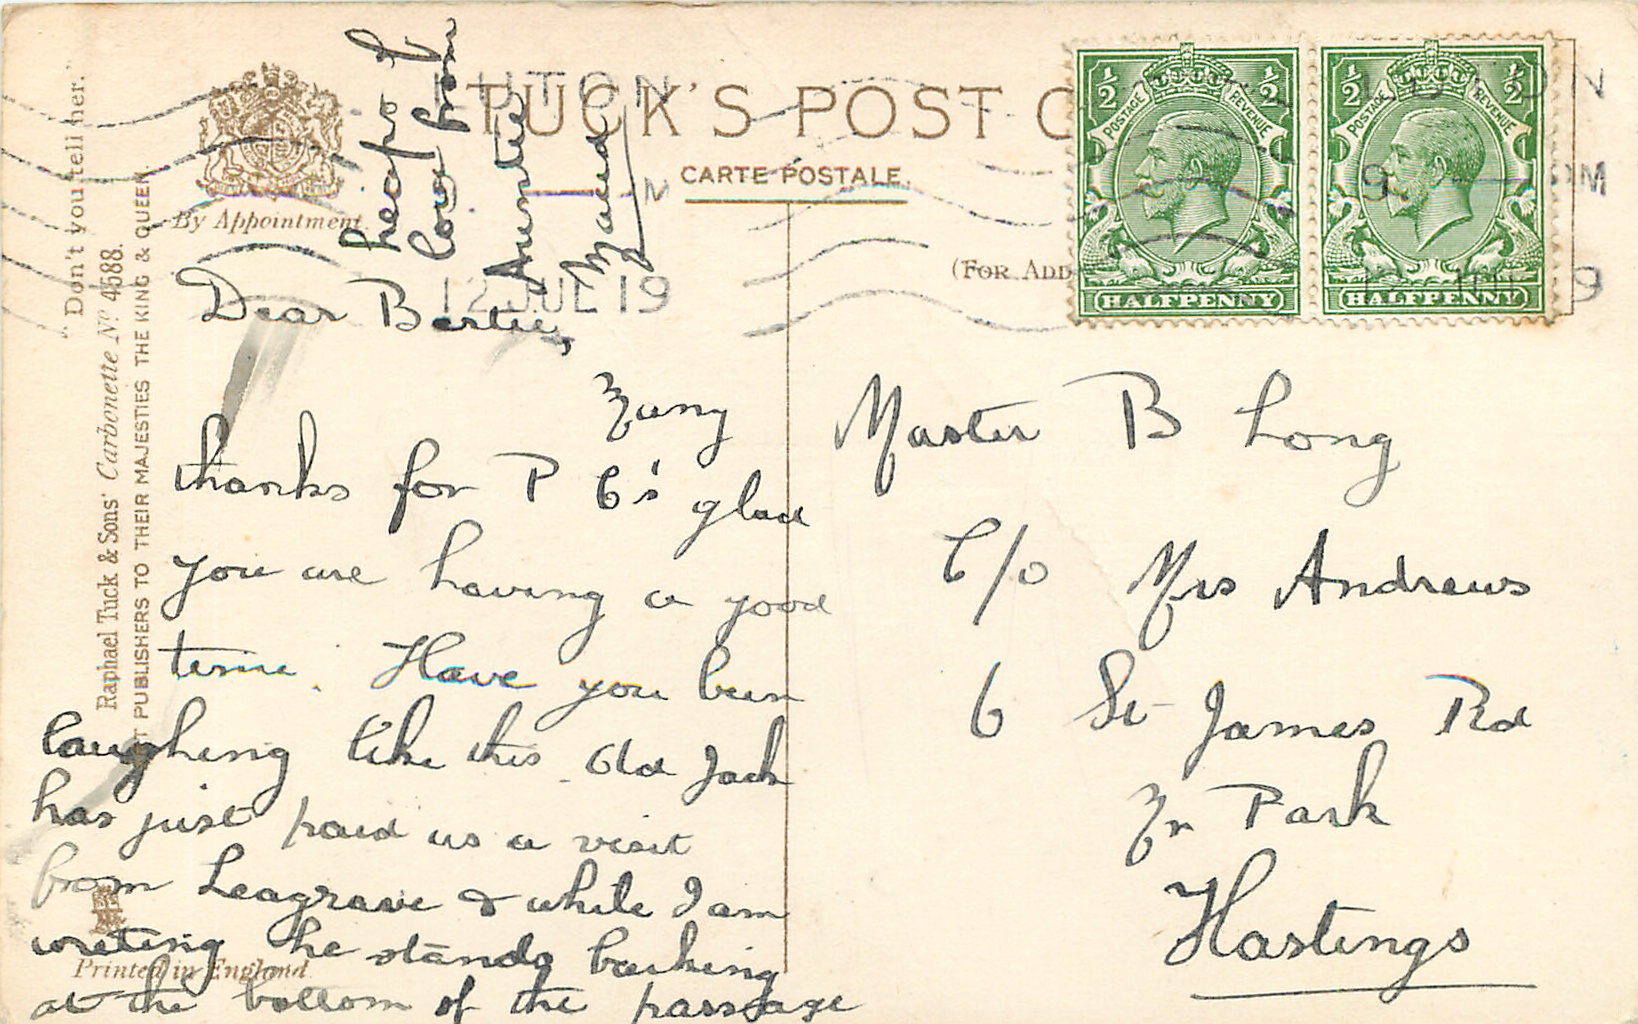 TUCK'S POST C
CARTE POSTALE.
(FOR ADD
By Appointment.
"Don't you tell her."
Raphael Tuck & Sons' Carbonette No 4588.
ART PUBLISHERS TO THEIR MAJESTIES THE KING & QUEEN.
Printed in England
LUTON
PM
12 JUL 19
LUTON
9. PM
12 JUL 19
1/2 1/2
POSTAGE REVENUE
HALFPENNY
1/2 1/2
POSTAGE REVENUE
HALFPENNY
Dear Bertie,
Many
thanks for P C's glad
you are having a good
time. Have you been
laughing like this. Old Jack
has just paid us a visit
from Leagrave & while I am
writing he stands barking
at the bottom of the passage
heaps of
love from
Auntie
Maud
Master B Long
C/o Mrs Andrews
6 St James Rd
Nr Park
Hastings